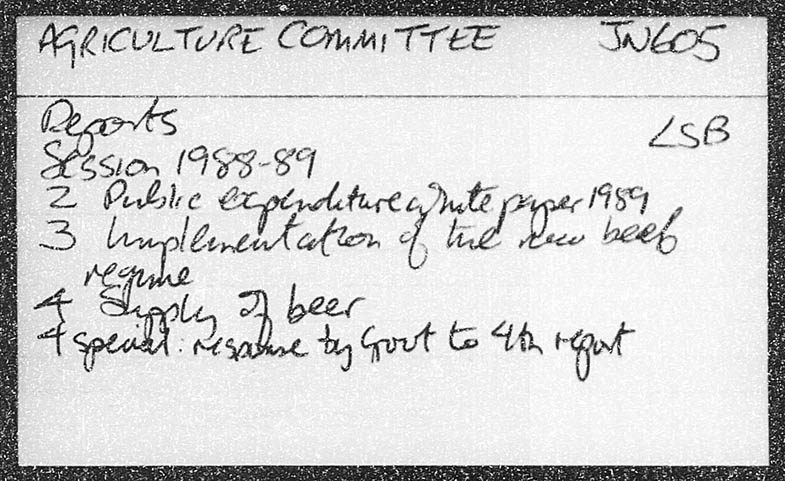 AGRICULTURE COMMITTEE JN605
Reports LSB
Session 1988-89
2 Public expenditure white paper 1989
3 Implementation of the new beef
regime
4 Supply of beer
4 special: response by Govt to 4th report